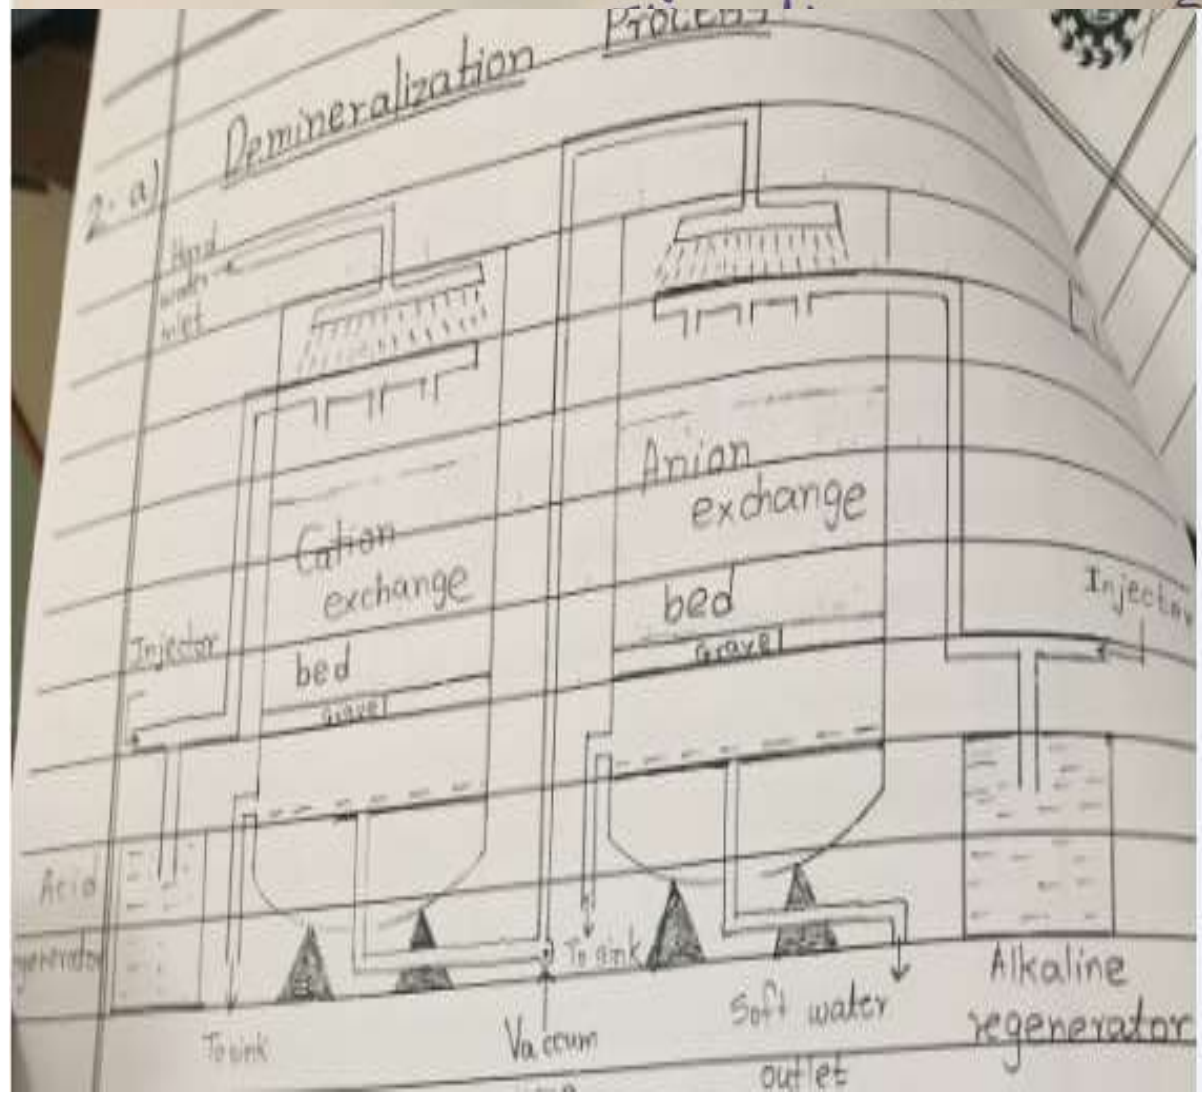 Process
Demineralization
2. a)
Hard
water
inlet
Cation
exchange
bed
Gravel
Anion
exchange
bed
Gravel
Injector
Injector
Acid
To sink
Vaccum
To sink
Soft water
outlet
Alkaline
regenerator